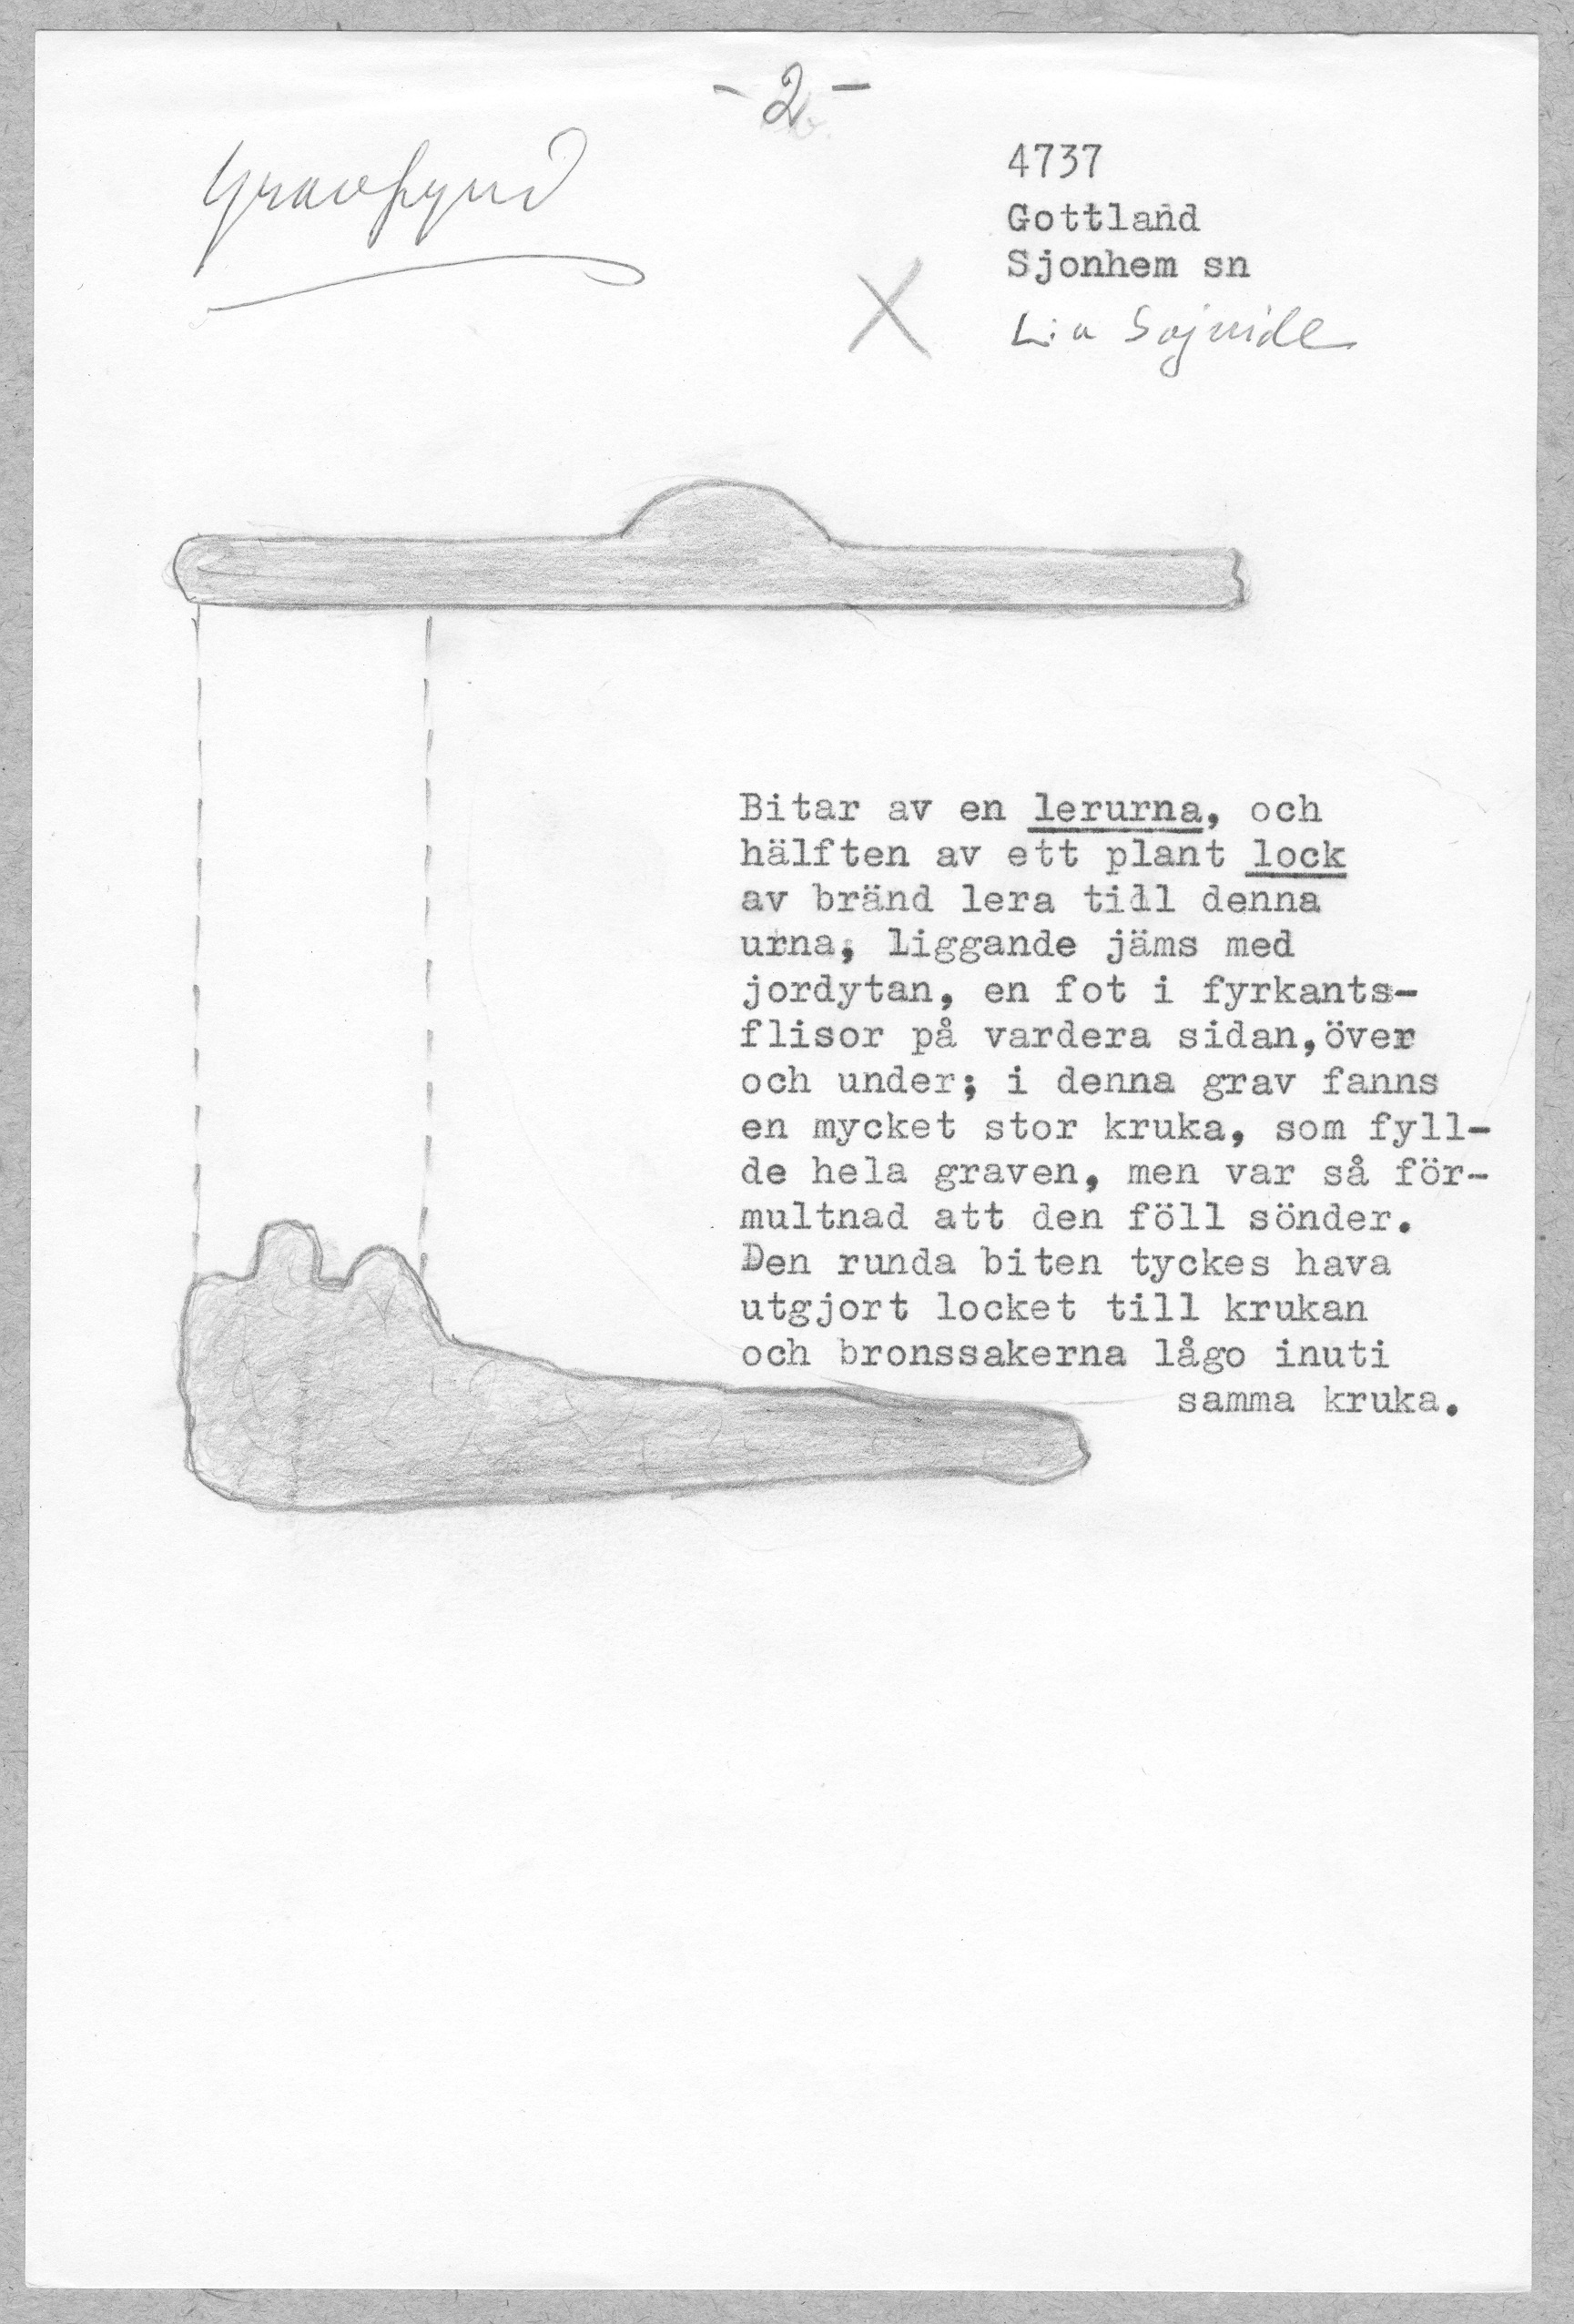 - 2 -
Gravfynd
4737
Gottland
Sjonhem sn
L:a Sojvide
Bitar av en lerurna, och
hälften av ett plant lock
av bränd lera till denna
urna, liggande jäms med
jordytan, en fot i fyrkants-
flisor på vardera sidan,över
och under; i denna grav fanns
en mycket stor kruka, som fyll-
de hela graven, men var så för-
multnad att den föll sönder.
Den runda biten tyckes hava
utgjort locket till krukan
och bronssakerna lågo inuti
samma kruka.